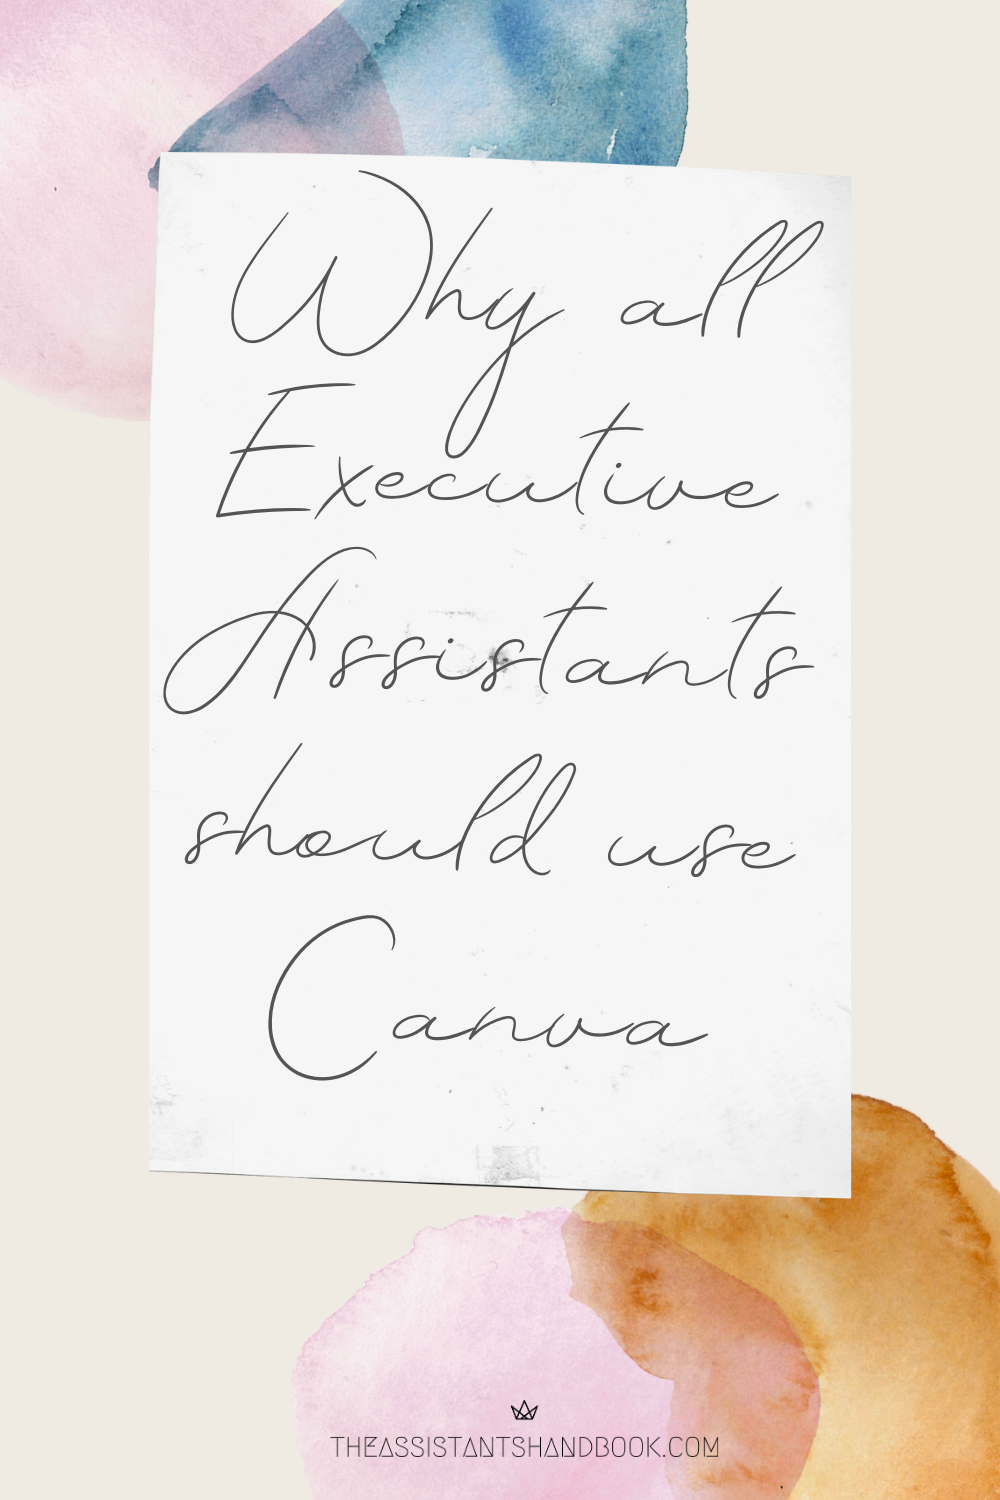 Why all
Executive
Assistants
should use
Canva
THEASSISTANTSHANDBOOK.COM